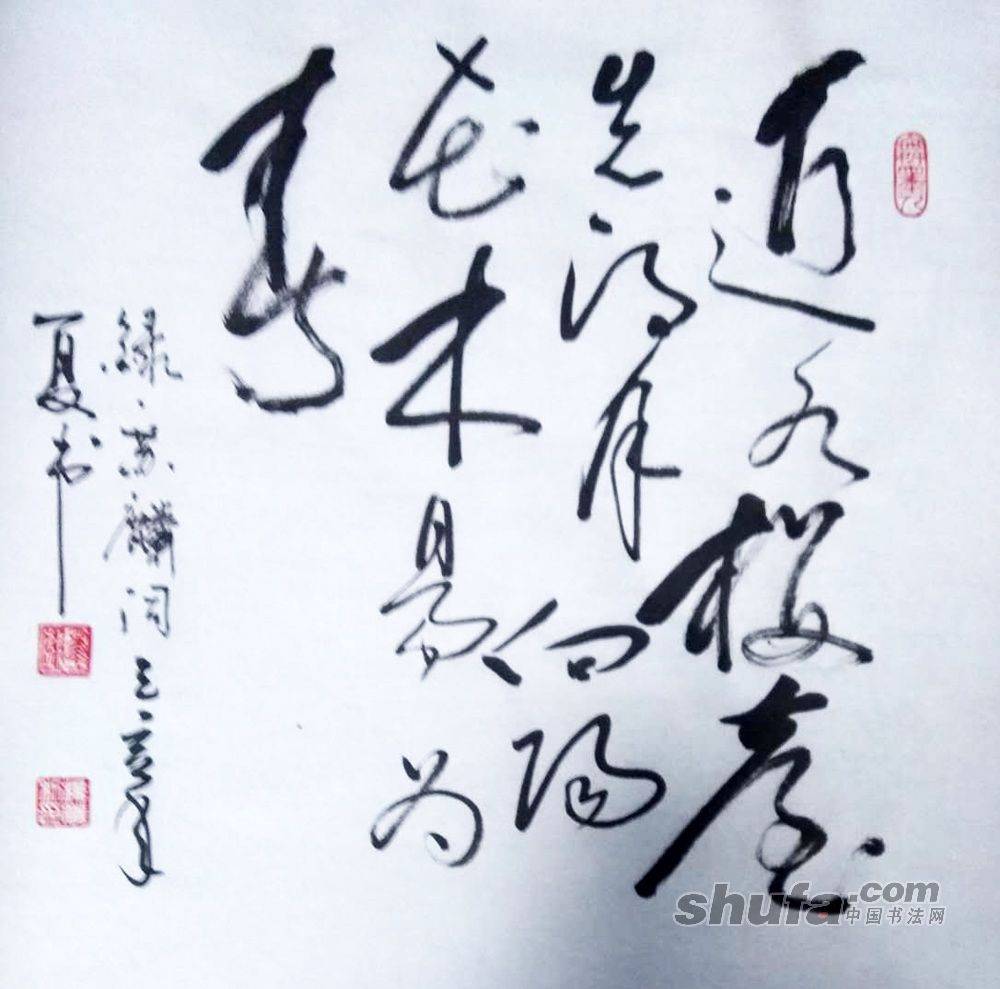 近水楼台
先得月向阳
花木易为
春
录苏麟
夏书
shufa.com
中国书法网